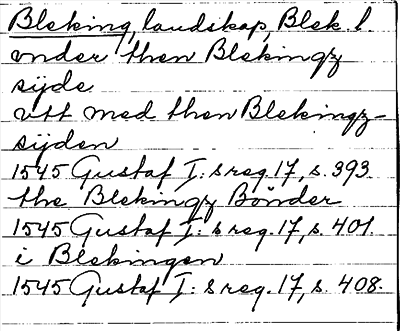 Bleking, landskap, Blek. l.
vnder then Blekingz
sijde
vtt med then Blekingz-
sijden
1545 Gustaf I: s reg. 17, s. 393.
the Blekingz Bönder
1545 Gustaf I: s reg. 17, s. 401
i Blekingen
1545 Gustaf I: s reg. 17, s. 408.